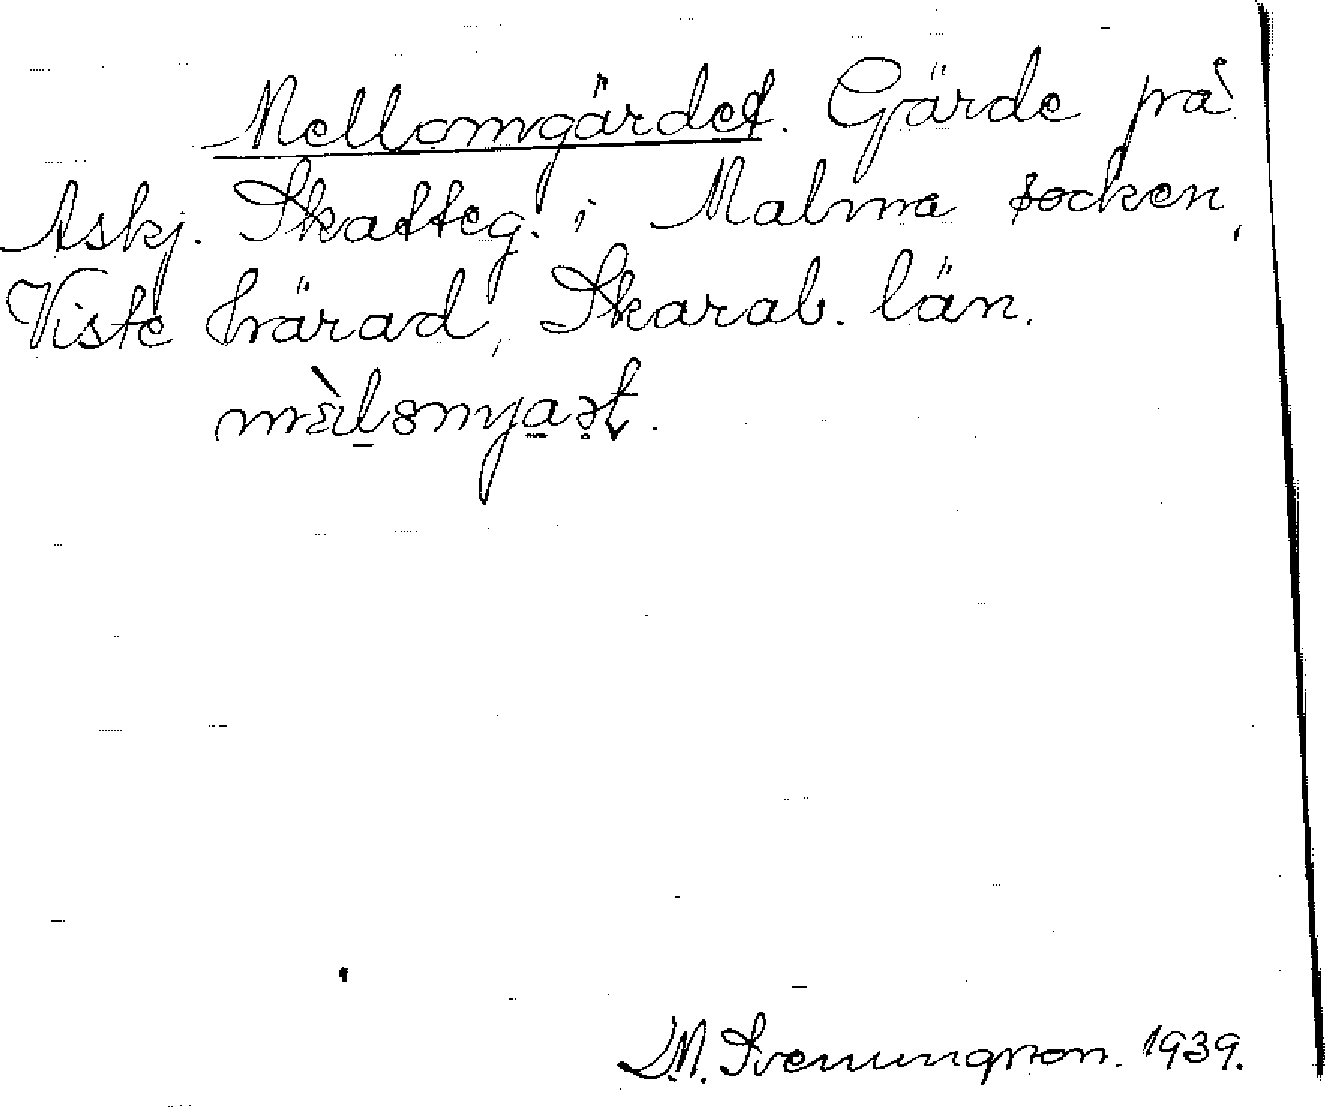 Mellomgärdet. Gärde på
Askj. Skatteg. i Malma socken,
Viste härad, Skarab. län.
Svenungson. 1939.